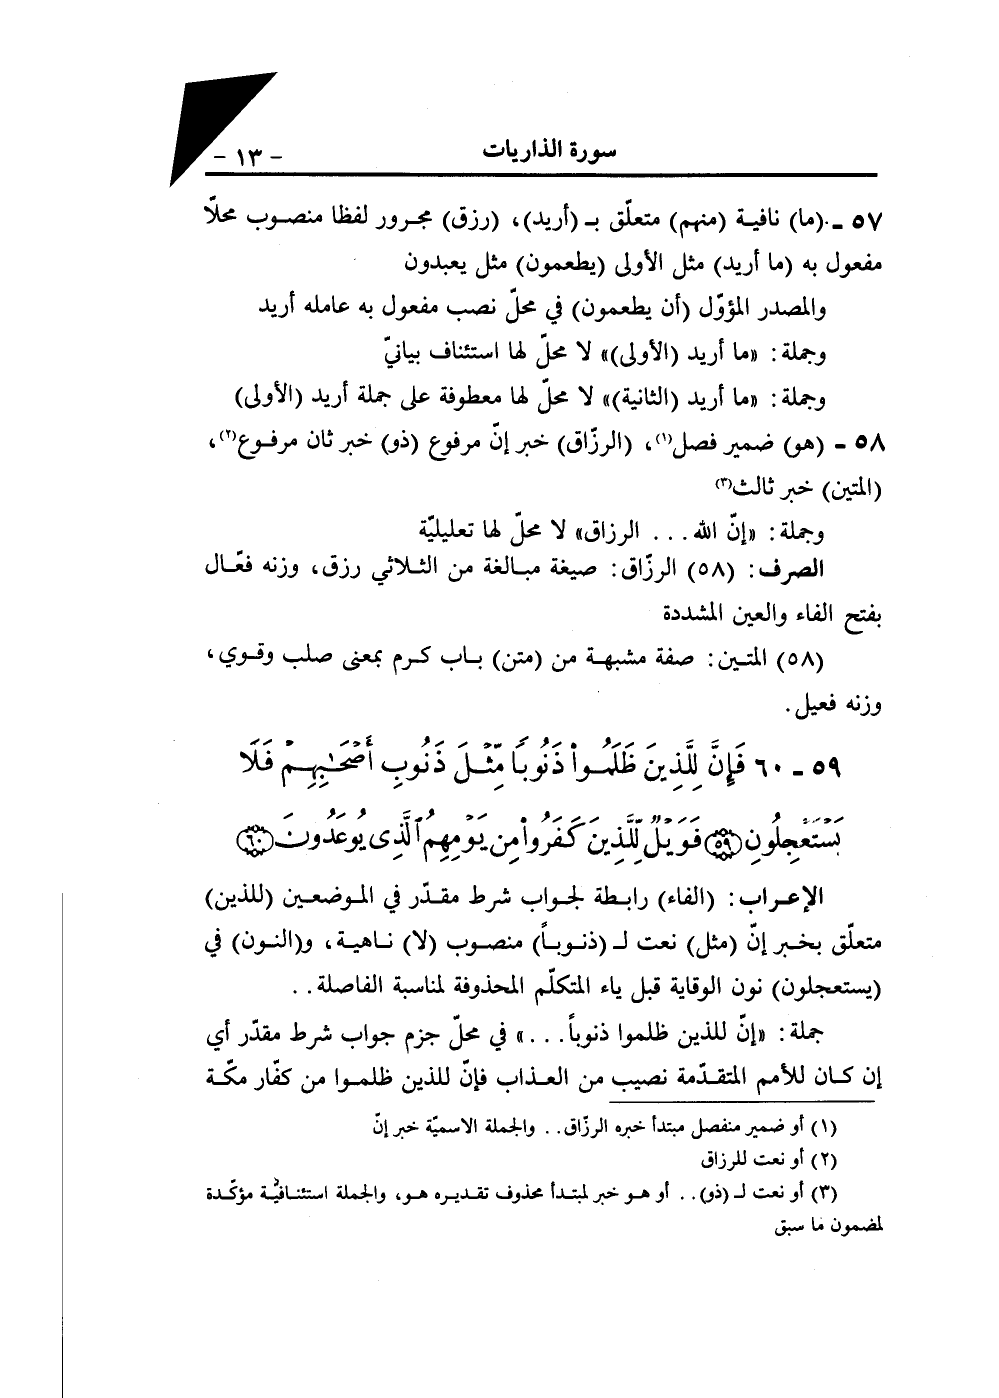 سورة الذاريات
- ١٣ -
٥٧ - (ما) نافية (منهم) متعلّق بـ (أريد)، (رزق) مجرور لفظا منصوب محلّا
مفعول به (ما أريد) مثل الأولى (يطعمون) مثل يعبدون
والمصدر المؤوّل (أن يطعمون) في محلّ نصب مفعول به عامله أريد
وجملة: «ما أريد (الأولى)» لا محلّ لها استئناف بيانيّ
وجملة: «ما أريد (الثانية)» لا محلّ لها معطوفة على جملة أريد (الأولى)
٥٨ - (هو) ضمير فصل(١)، (الرزّاق) خبر إنّ مرفوع (ذو) خبر ثان مرفوع(٢)،
(المتين) خبر ثالث(٣)
وجملة: «إنّ الله... الرزاق» لا محلّ لها تعليليّة
الصرف: (٥٨) الرزّاق: صيغة مبالغة من الثلاثي رزق، وزنه فعّال
بفتح الفاء والعين المشددة
(٥٨) المتين: صفة مشبهة من (متن) باب كرم بمعنى صلب وقوي،
وزنه فعيل.
٥٩ - ٦٠ فَإِنَّ لِلَّذِينَ ظَلَمُوا۟ ذَنُوبًا مِّثْلَ ذَنُوبِ أَصْحَـٰبِهِمْ فَلَا
يَسْتَعْجِلُونِ ٥٩ فَوَيْلٌ لِّلَّذِينَ كَفَرُوا۟ مِن يَوْمِهِمُ ٱلَّذِى يُوعَدُونَ ٦٠
الإعراب: (الفاء) رابطة لجواب شرط مقدّر في الموضعين (للذين)
متعلّق بخبر إنّ (مثل) نعت لـ (ذنوباً) منصوب (لا) ناهية، و(النون) في
(يستعجلون) نون الوقاية قبل ياء المتكلّم المحذوفة لمناسبة الفاصلة..
جملة: «إنّ للذين ظلموا ذنوباً...» في محلّ جزم جواب شرط مقدّر أي
إن كان للأمم المتقدّمة نصيب من العذاب فإنّ للذين ظلموا من كفّار مكّة
(١) أو ضمير منفصل مبتدأ خبره الرزّاق.. والجملة الاسميّة خبر إنّ
(٢) أو نعت للرزاق
(٣) أو نعت لـ (ذو).. أو هو خبر لمبتدأ محذوف تقديره هو، والجملة استئنافيّة مؤكّدة
لمضمون ما سبق